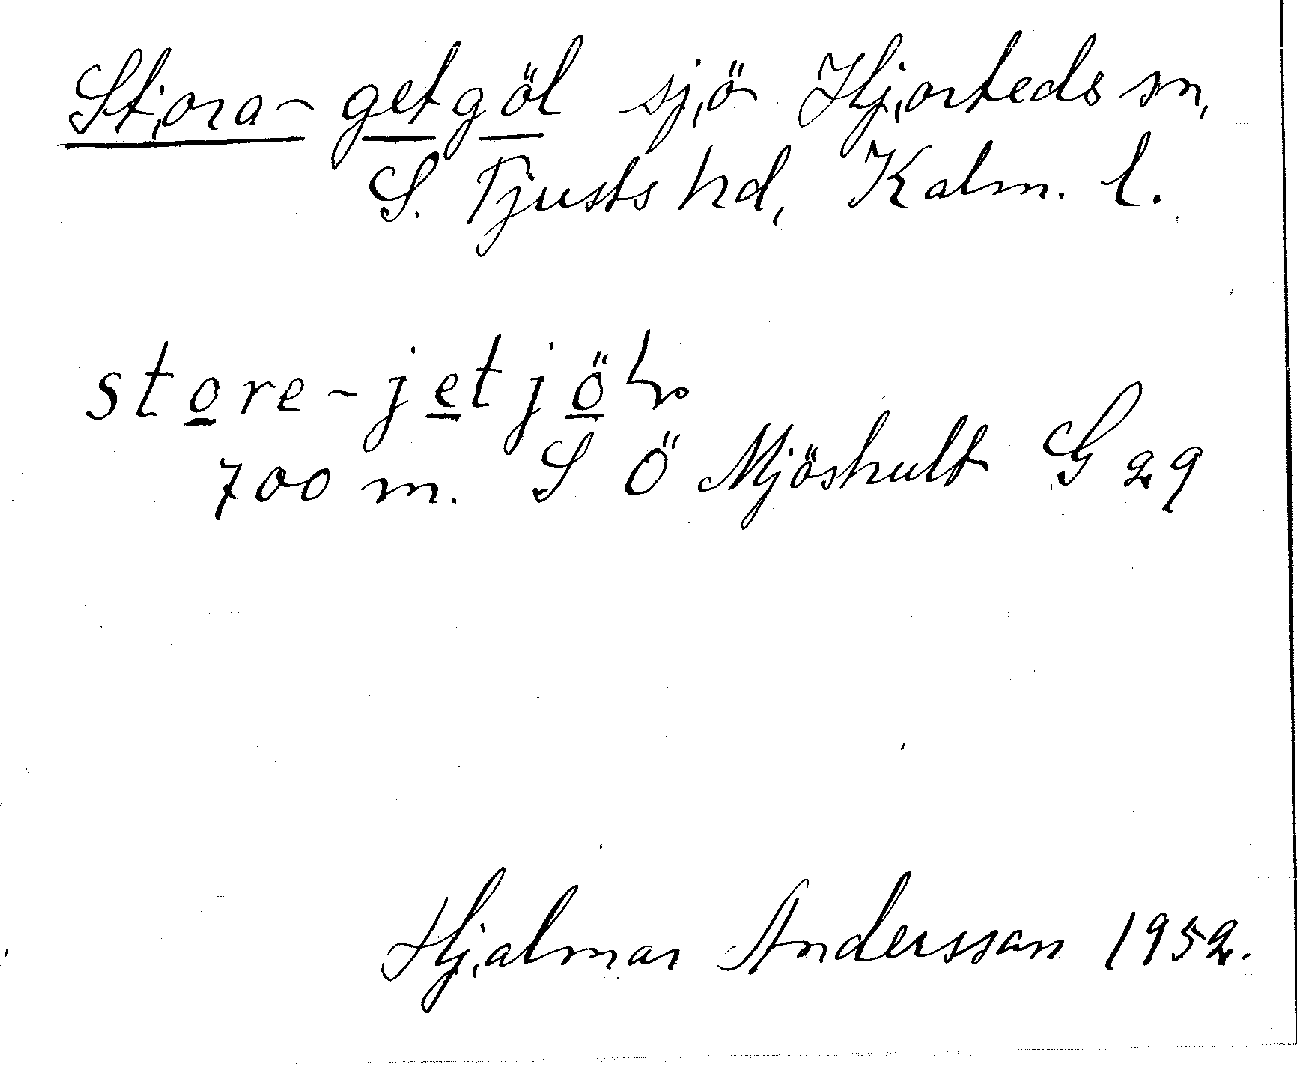 Stora-getgöl sjö Hjorteds sn,
S. Tjusts hd, Kalm. l.
store-jetjöln
700 m. S Ö Mjöshult G 29
Hjalmar Andersson 1952.